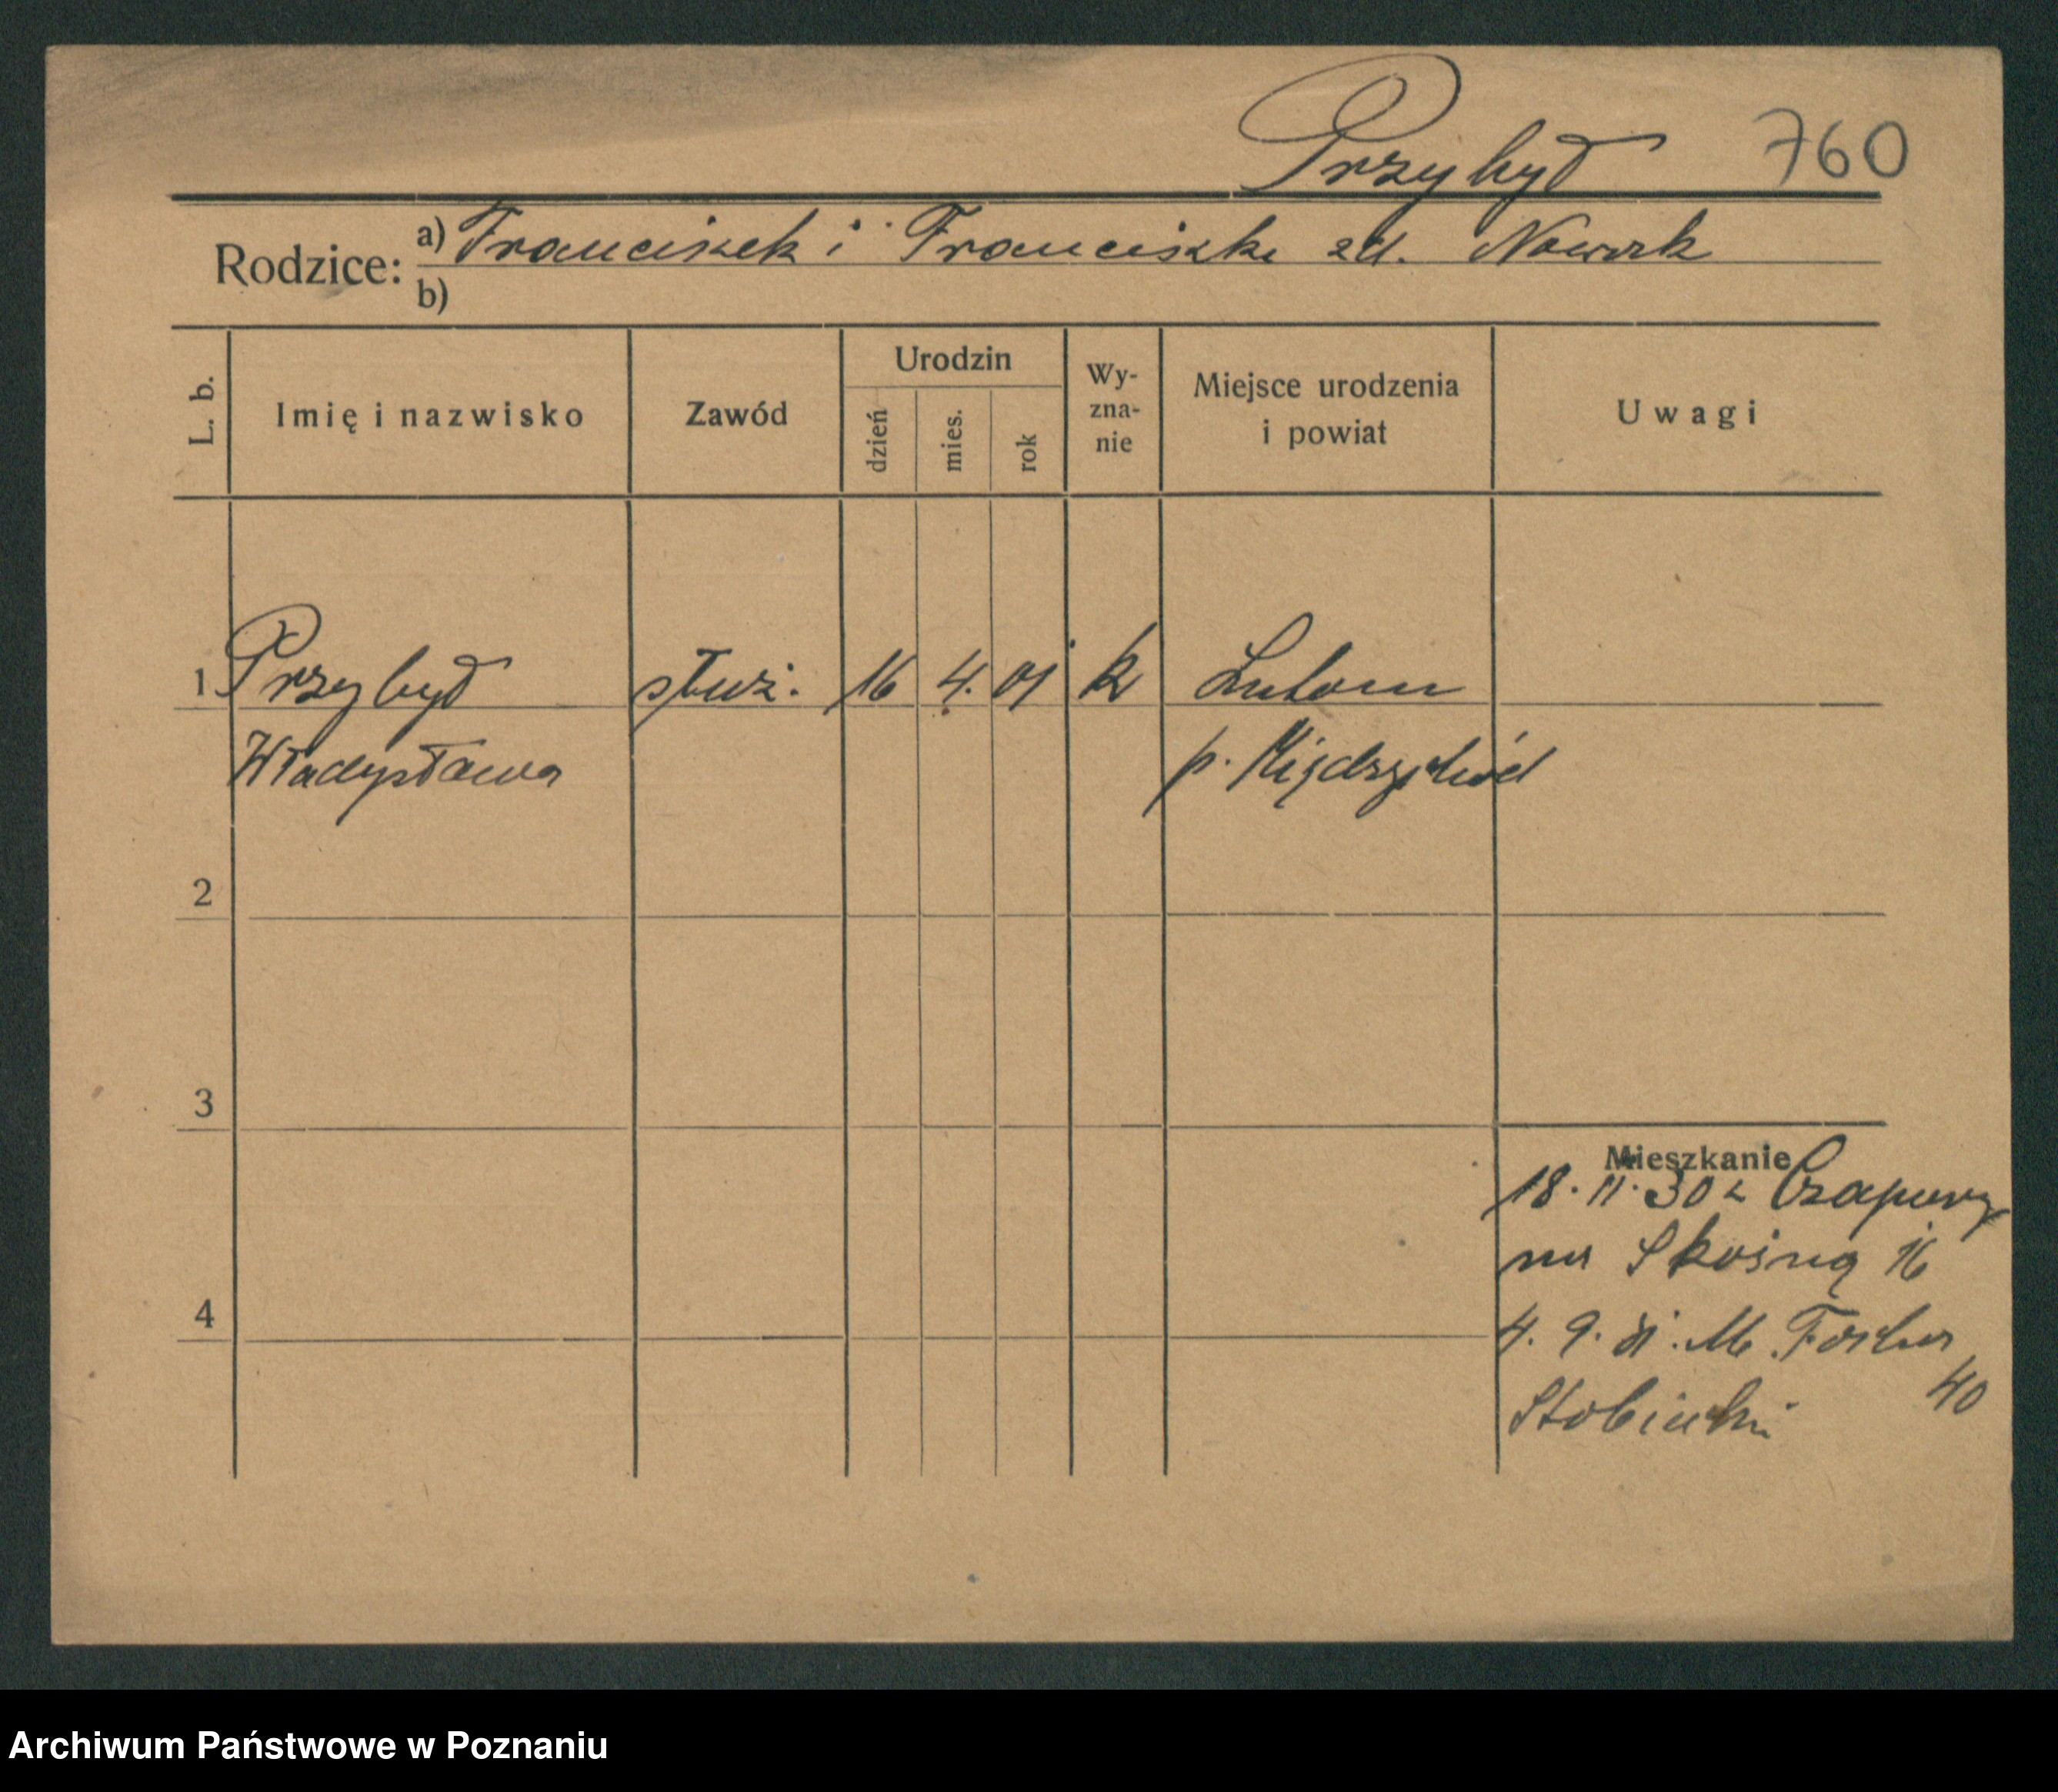 Przybył 760
Rodzice: a) Franciszek i Franciszka zd. Nowak
b)
L. b. Imię i nazwisko Zawód Urodzin dzień mies. rok Wy-zna-nie Miejsce urodzenia i powiat Uwagi
1 Przybył służ. 16 4. 01 k Lutom
Władysława p. Międzychód
2
3
Mieszkanie
18. 11. 30 z Czapury
na Skośną 16
4
4. 9. 31. M. Focha
40
Stobiecki
Archiwum Państwowe w Poznaniu